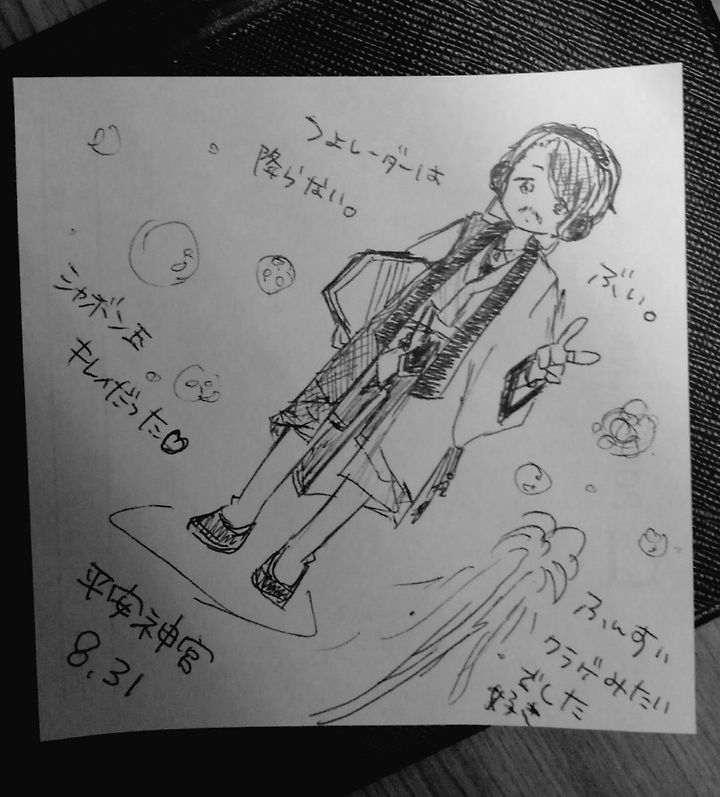 うよレーダーは
降らない。
ぶい。
シャボン玉
キレイだった♡
平安神宮
8.31
ふんすい
クラゲみたい
でした
好き